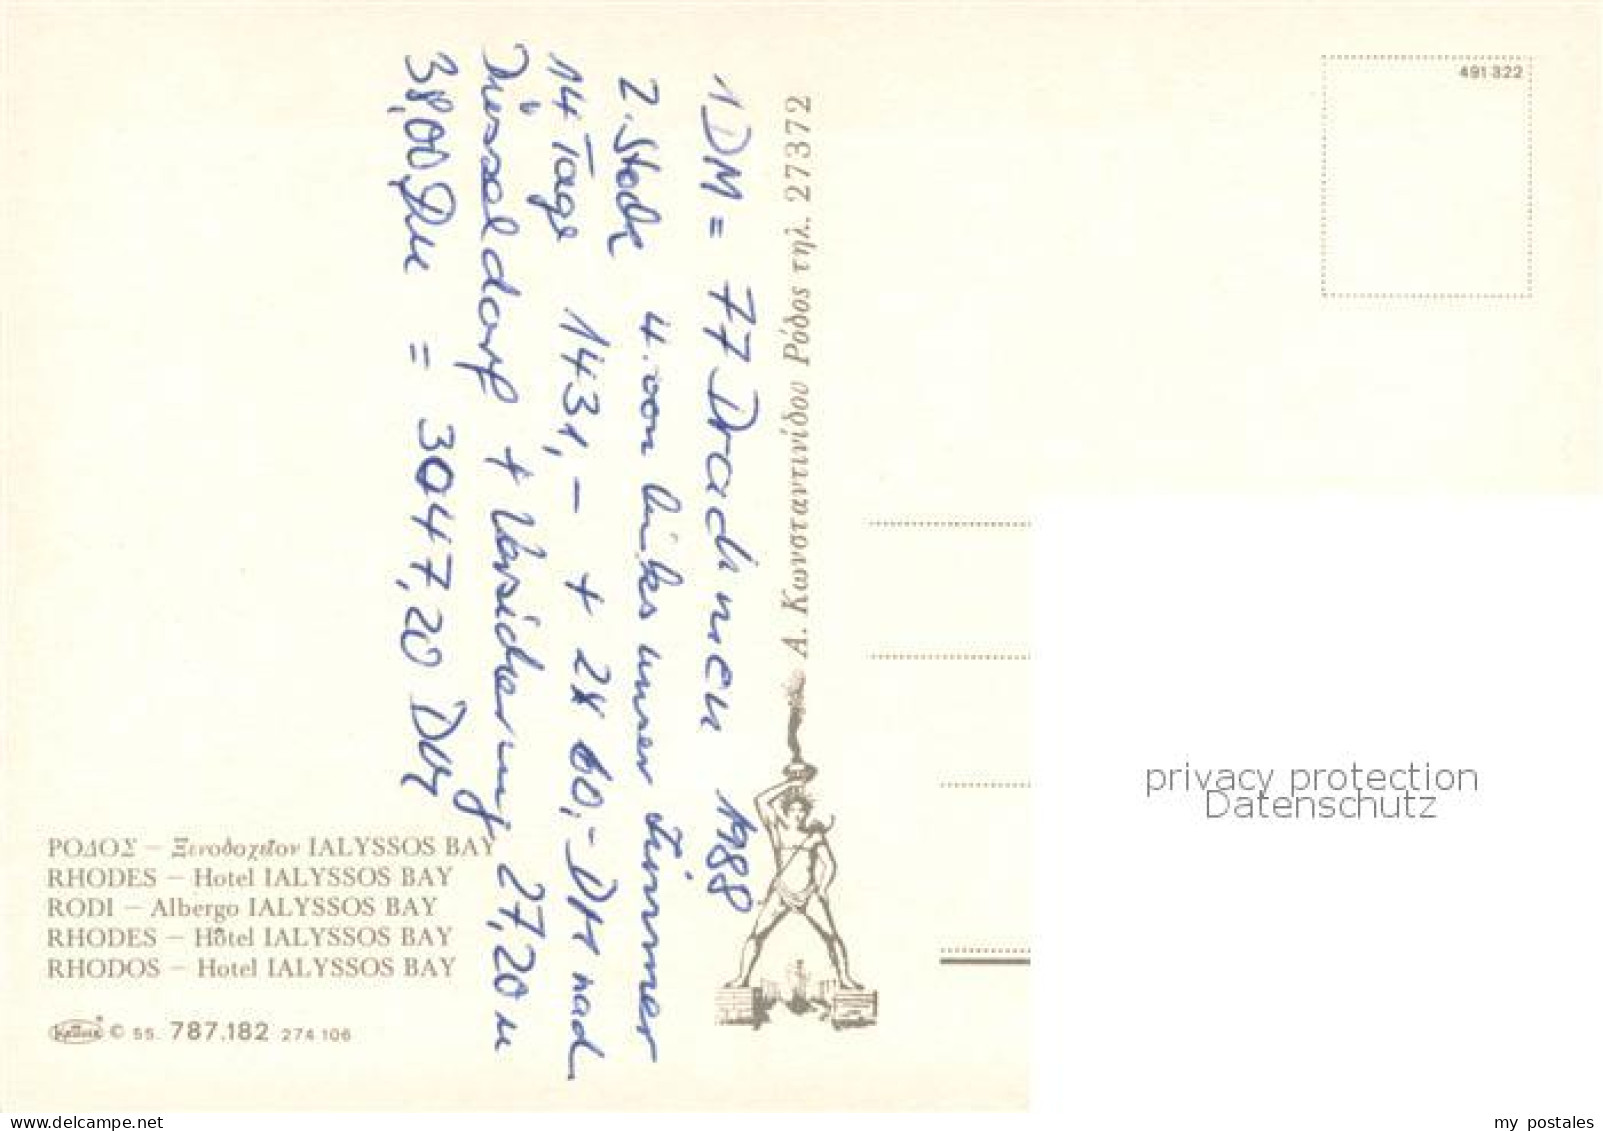 1 DM = 77 Drachmen 1988
2. Stock 4. von links unser Zimmer
14 Tage 1431,- + 2x 60,- DM nach
Düsseldorf + Versicherung 27,20 u
38,00 DM = 3047,20 DM
Α. Κωνσταντινίδου Ρόδος τηλ. 27372
491 322
ΡΟΔΟΣ – Ξενοδοχεῖον IALYSSOS BAY
RHODES – Hotel IALYSSOS BAY
RODI – Albergo IALYSSOS BAY
RHODES – Hôtel IALYSSOS BAY
RHODOS – Hotel IALYSSOS BAY
© 55. 787.182 274 106
privacy protection
Datenschutz
my postales